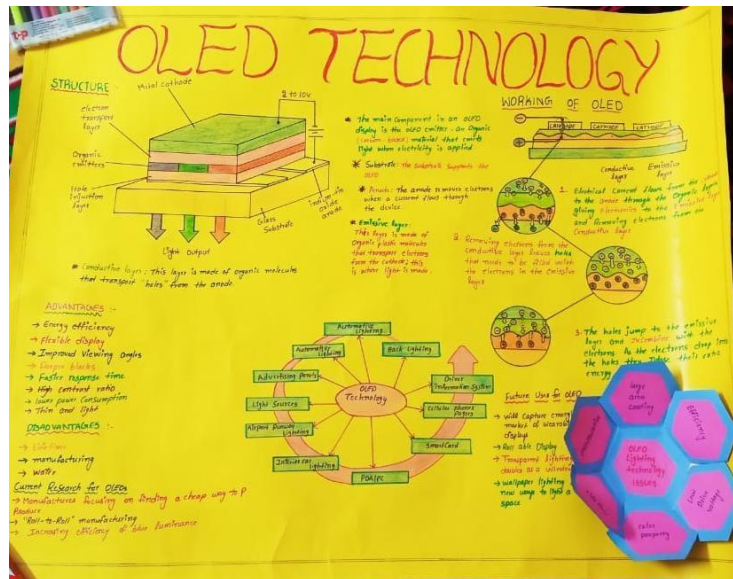 OLED TECHNOLOGY
STRUCTURE
Metal cathode
electron
transport
layer
Organic
emitters
Hole
Injection
layer
2 to 10v
Indium-tin
oxide
anode
Glass
Substrate
Light output
* Conductive layer: This layer is made of organic molecules
that transport "holes" from the anode.
* The main component in an OLED
display is the OLED emitter - an Organic
(carbon-based) material that emits
light when electricity is applied
* Substrate: The substrate supports the
OLED
* Anode: The anode removes electrons
when a current flows through
the device
* Emissive layer:
This layer is made of
Organic plastic molecules
that transport electrons
from the cathode; this
is where light is made.
WORKING OF OLED
CATHODE
CATHODE
CATHODE
Conductive
layer
Emissive
layer
1. Electrical Current flows from the
to the anode through the Organic layers
giving electrons to the emissive layer
and Removing electrons from the
Conductive layer
2. Removing electrons from the
conductive layer leaves holes
that needs to be filled with
the electrons in the emissive
layer
3. The holes jump to the emissive
layer and recombine with the
electrons. As the electrons drop into
the holes they release their extra
energy
ADVANTAGES :-
→ Energy efficiency
→ Flexible display
→ Improved viewing angles
→ Deeper blacks
→ Faster response time
→ High contrast ratio
→ lower power consumption
→ Thin and light
DISADVANTAGES :-
→ manufacturing
→ water
Current Research for OLEDs
→ Manufactures focusing on finding a cheap way to P
Produce
→ "Roll-to-Roll" manufacturing
→ Increasing efficiency of blue luminance
OLED
Technology
Automotive
Lighting
Back Lighting
Automotive
Lighting
Advertising Panels
Light Sources
Airport Runway
Lighting
Interior car
lighting
PDA/PC
SmartCard
Cellular phones
Pagers
Driver
Information System
Future Uses for OLED
→ Will Capture energy
market of wearable
displays
→ Roll able Display
→ Transparent lighting
doubles as a window
→ wallpaper lighting
new ways to light a
space
large
area
coating
EFFICIENCY
OLED
Lighting
technology
issues
Low
Drive
voltage
color
property